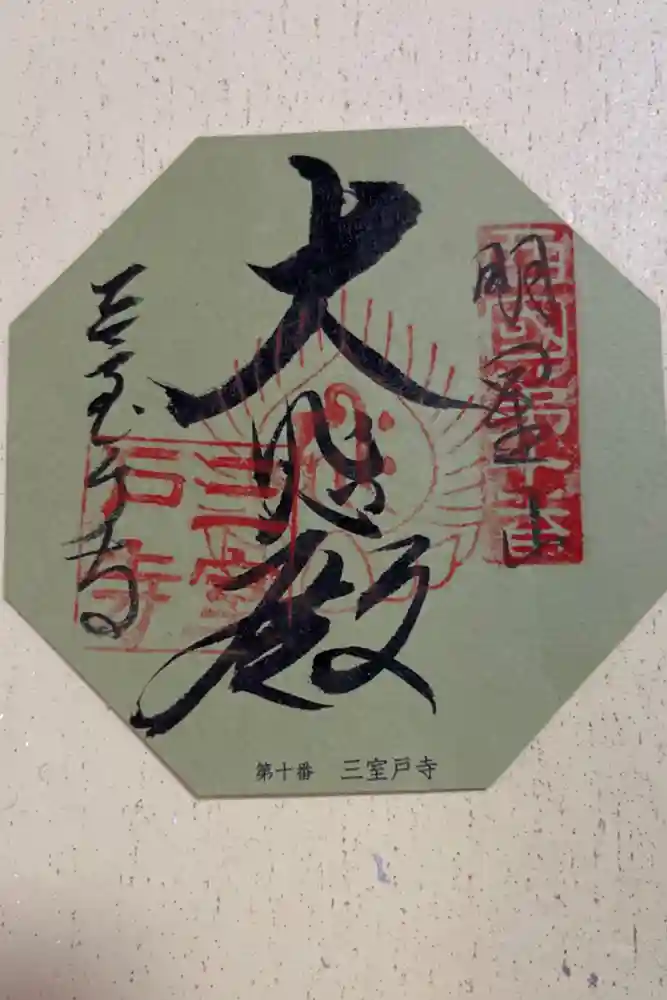 西国第十番
明星山
大悲殿
三室戸寺
三室戸寺
第十番 三室戸寺